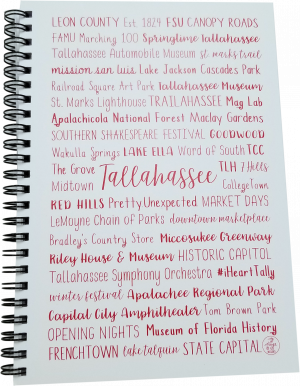 LEON COUNTY Est. 1824 FSU CANOPY ROADS
FAMU Marching 100 Springtime Tallahassee
Tallahassee Automobile Museum st. marks trail
mission san luis Lake Jackson Cascades Park
Railroad Square Art Park Tallahassee Museum
St. Marks Lighthouse TRAILAHASSEE Mag Lab
Apalachicola National Forest Maclay Gardens
SOUTHERN SHAKESPEARE FESTIVAL GOODWOOD
Wakulla Springs LAKE ELLA Word of South TCC
The Grove Tallahassee TLH 7 Hills
Midtown CollegeTown
RED HILLS Pretty Unexpected MARKET DAYS
LeMoyne Chain of Parks downtown marketplace
Bradley's Country Store Miccosukee Greenway
Riley House & Museum HISTORIC CAPITOL
Tallahassee Symphony Orchestra #iHeartTally
winter festival Apalachee Regional Park
Capital City Amphitheater Tom Brown Park
OPENING NIGHTS Museum of Florida History
FRENCHTOWN lake talquin STATE CAPITAL